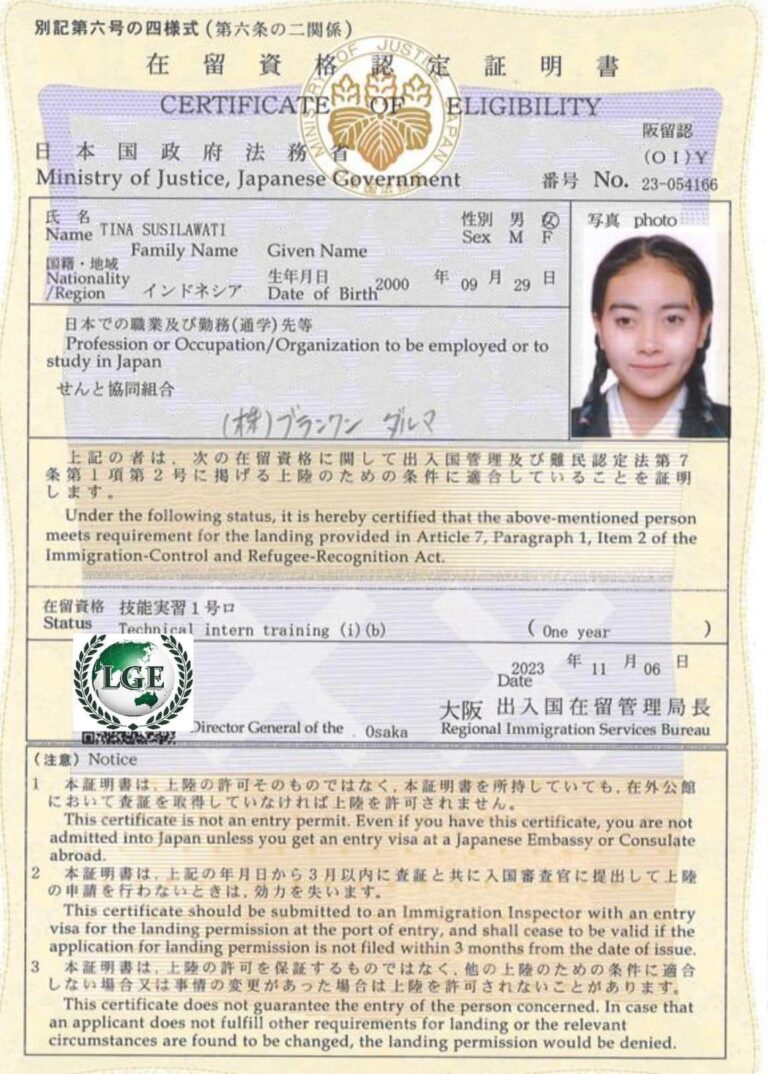 別記第六号の四様式(第六条の二関係)
在留資格認定証明書
CERTIFICATE OF ELIGIBILITY
MINISTRY OF JUSTICE, JAPAN
阪留認
日本国政府法務省
(OI)Y
Ministry of Justice, Japanese Government
番号 No. 23-054166
氏名
Name TINA SUSILAWATI
Family Name Given Name
性別 男 女
Sex M F
写真 photo
国籍・地域
Nationality
/Region インドネシア
生年月日
Date of Birth 2000 年 09 月 29 日
日本での職業及び勤務(通学)先等
Profession or Occupation/Organization to be employed or to
study in Japan
せんと協同組合
(株)ブランワン ダルマ
上記の者は,次の在留資格に関して出入国管理及び難民認定法第7
条第1項第2号に掲げる上陸のための条件に適合していることを証明
します。
Under the following status, it is hereby certified that the above-mentioned person
meets requirement for the landing provided in Article 7, Paragraph 1, Item 2 of the
Immigration-Control and Refugee-Recognition Act.
在留資格 技能実習1号ロ
Status Technical intern training (i)(b) ( One year )
LGE
2023 年 11 月 06 日
Date
大阪 出入国在留管理局長
Director General of the Osaka Regional Immigration Services Bureau
(注意) Notice
1 本証明書は,上陸の許可そのものではなく,本証明書を所持していても,在外公館
において査証を取得していなければ上陸を許可されません。
This certificate is not an entry permit. Even if you have this certificate, you are not
admitted into Japan unless you get an entry visa at a Japanese Embassy or Consulate
abroad.
2 本証明書は,上記の年月日から3月以内に査証と共に入国審査官に提出して上陸
の申請を行わないときは,効力を失います。
This certificate should be submitted to an Immigration Inspector with an entry
visa for the landing permission at the port of entry, and shall cease to be valid if the
application for landing permission is not filed within 3 months from the date of issue.
3 本証明書は,上陸の許可を保証するものではなく,他の上陸のための条件に適合
しない場合又は事情の変更があった場合は上陸を許可されないことがあります。
This certificate does not guarantee the entry of the person concerned. In case that
an applicant does not fulfill other requirements for landing or the relevant
circumstances are found to be changed, the landing permission would be denied.